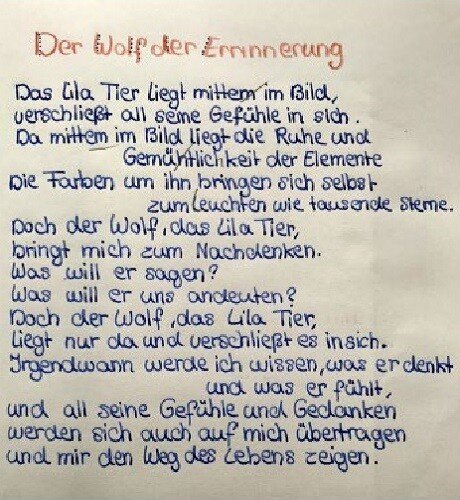 Der Wolf der Errinnerung
Das Lila Tier liegt mittem im Bild,
verschließt all seine Gefühle in sich.
Da mittem im Bild liegt die Ruhe und
Gemühtlichkeit der Elemente
Die Farben um ihn bringen sich selbst
zum leuchten wie tausende Sterne.
Doch der Wolf, das Lila Tier,
bringt mich zum Nachdenken.
Was will er sagen?
Was will er uns andeuten?
Doch der Wolf, das Lila Tier,
liegt nur da und verschließt es in sich.
Irgendwann werde ich wissen, was er denkt
und was er fühlt,
und all seine Gefühle und Gedanken
werden sich auch auf mich übertragen
und mir den Weg des Lebens zeigen.